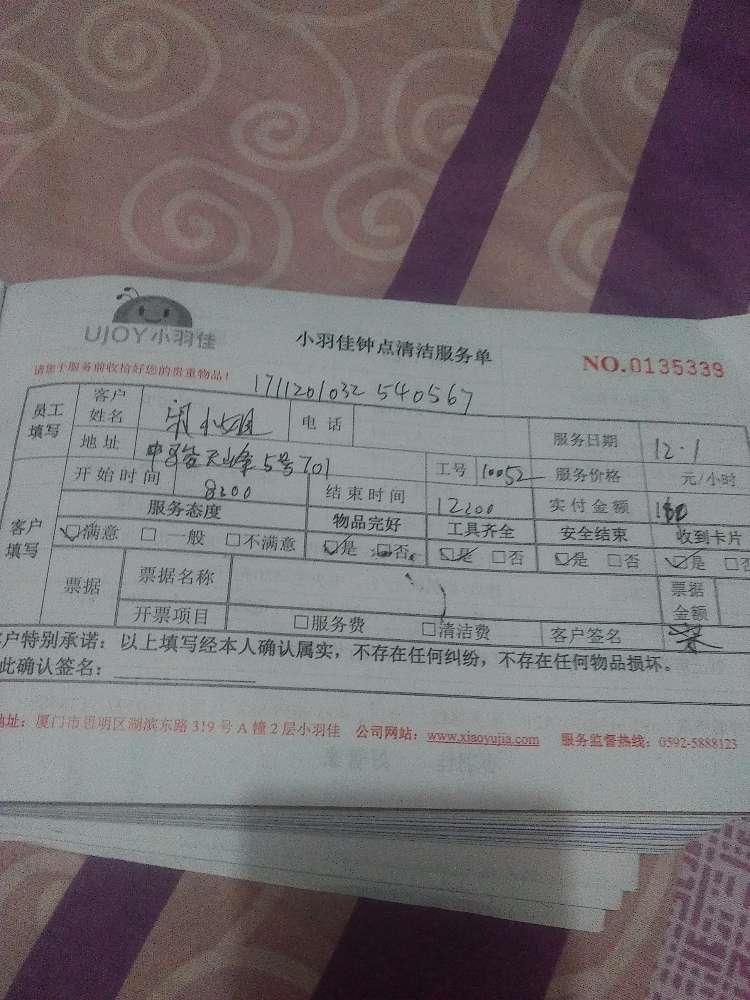 UJOY小羽佳
小羽佳钟点清洁服务单
NO.0135339
请您于服务前收拾好您的贵重物品！
1711201032540567
员工填写 客户姓名 小姐 电话 服务日期 12.1
地址 天山峯5号701 工号 10052 服务价格 元/小时
客户填写 开始时间 8:00 结束时间 12:00 实付金额
服务态度 物品完好 工具齐全 安全结束 收到卡片
☑满意 □一般 □不满意 ☑是 □否 ☑是 □否 ☑是 □否 ☑是 □否
票据 票据名称 票据金额
开票项目 □服务费 □清洁费 客户签名
客户特别承诺：以上填写经本人确认属实，不存在任何纠纷，不存在任何物品损坏。
此确认签名：
地址：厦门市思明区湖滨东路319号A幢2层小羽佳 公司网站：www.xiaoyujia.com 服务监督热线：0592-5888123